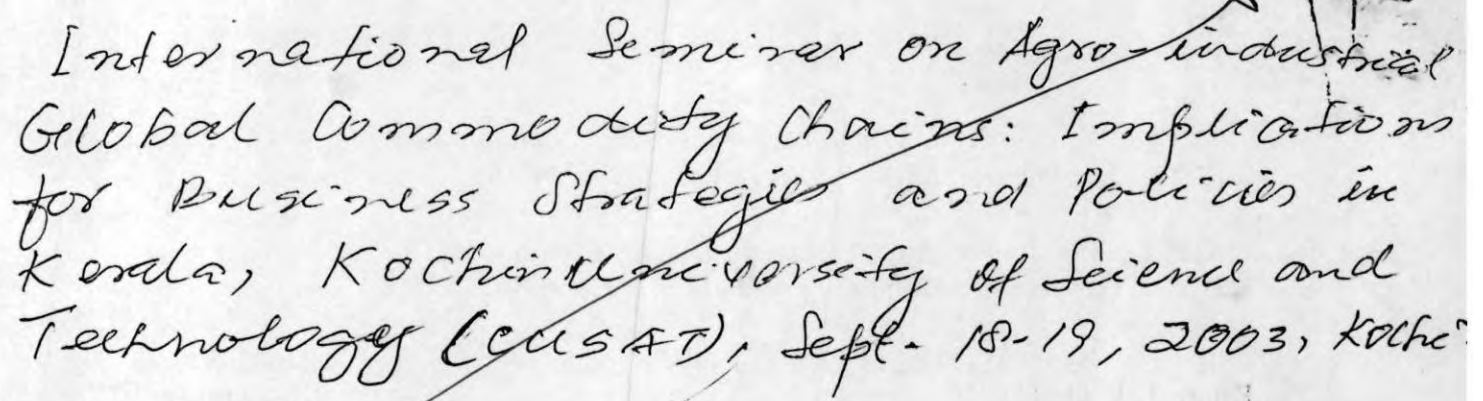 International Seminar on Agro-industrial
Global Commodity Chains: Implications
for Business Strategies and Policies in
Kerala, Kochin University of Science and
Technology (CUSAT), Sept. 18-19, 2003, Kochi